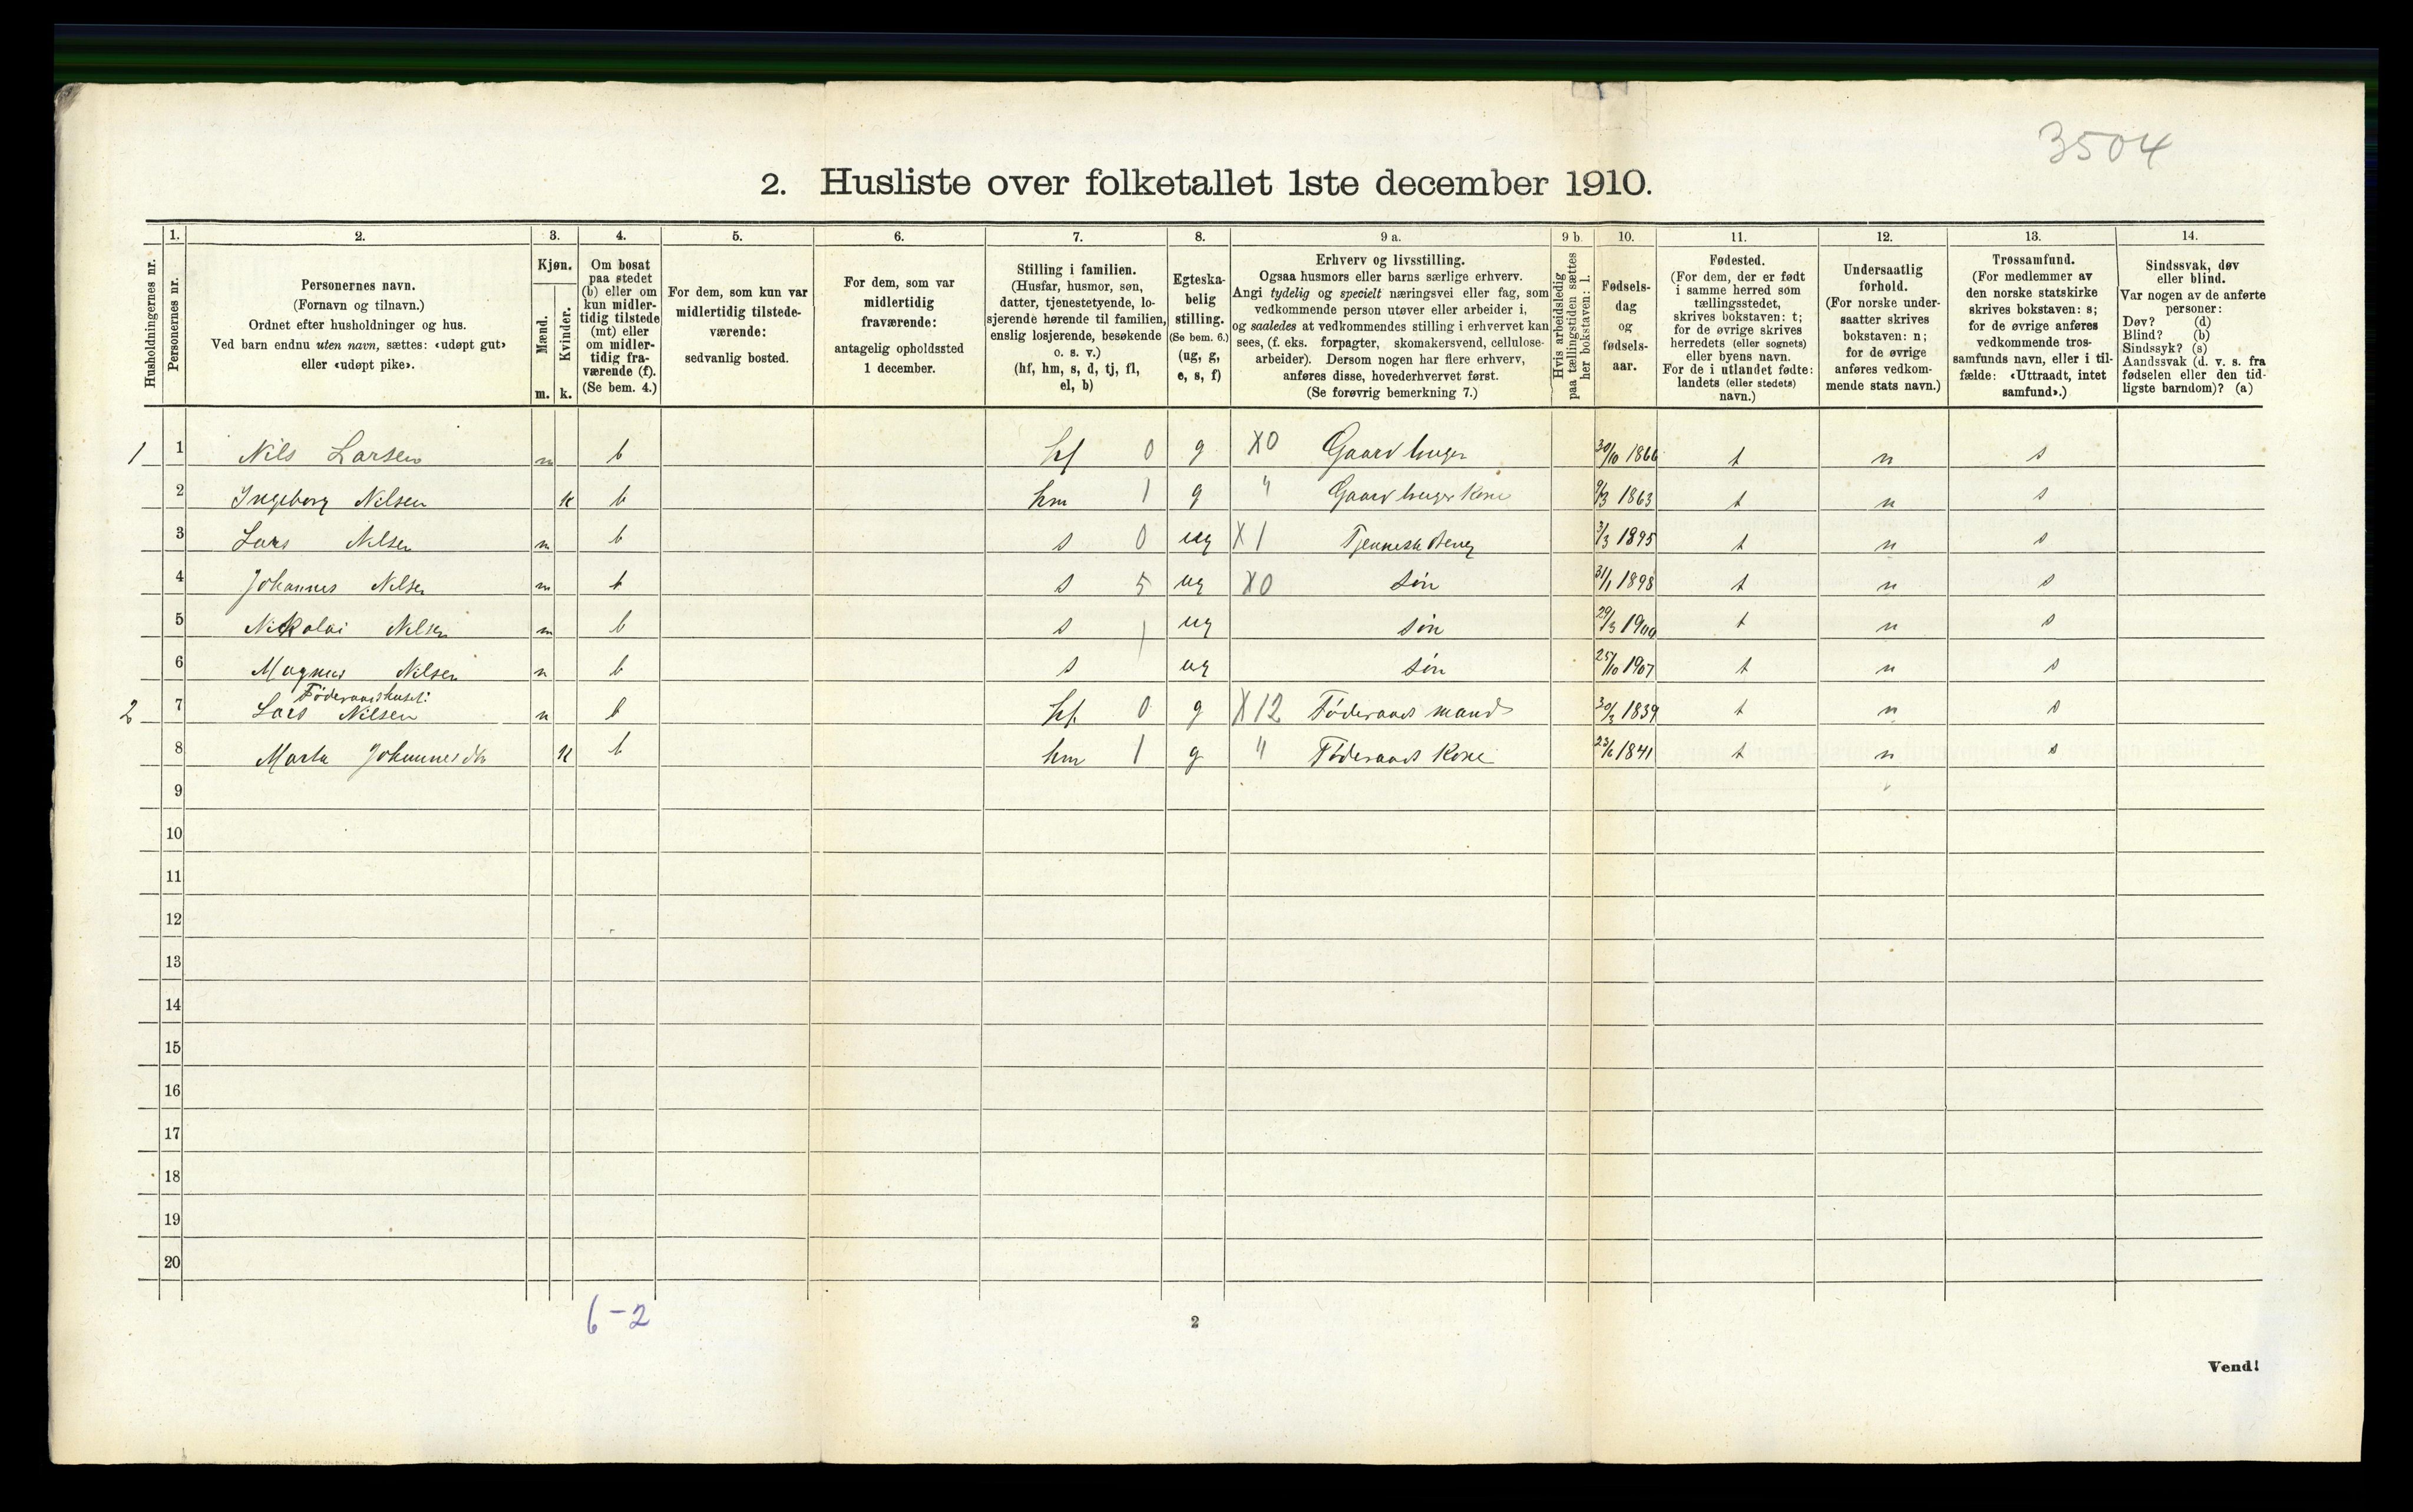 3504
2. Husliste over folketallet 1ste december 1910.
Husholdningernes nr.
1. Personernes nr.
2. Personernes navn.
(Fornavn og tilnavn.)
Ordnet efter husholdninger og hus.
Ved barn endnu uten navn, sættes: «udøpt gut»
eller «udøpt pike».
3. Kjøn.
Mænd. m.
Kvinder. k.
4. Om bosat
paa stedet
(b) eller om
kun midler-
tidig tilstede
(mt) eller
om midler-
tidig fra-
værende (f).
(Se bem. 4.)
5. For dem, som kun var
midlertidig tilstede-
værende:
sedvanlig bosted.
6. For dem, som var
midlertidig
fraværende:
antagelig opholdssted
1 december.
7. Stilling i familien.
(Husfar, husmor, søn,
datter, tjenestetyende, lo-
sjerende hørende til familien,
enslig losjerende, besøkende
o. s. v.)
(hf, hm, s, d, tj, fl,
el, b)
8. Egteska-
belig
stilling.
(Se bem. 6.)
(ug, g,
e, s, f)
9 a. Erhverv og livsstilling.
Ogsaa husmors eller barns særlige erhverv.
Angi tydelig og specielt næringsvei eller fag, som
vedkommende person utøver eller arbeider i,
og saaledes at vedkommendes stilling i erhvervet kan
sees, (f. eks. forpagter, skomakersvend, cellulose-
arbeider). Dersom nogen har flere erhverv,
anføres disse, hovederhvervet først.
(Se forøvrig bemerkning 7.)
9 b. Hvis arbeidsledig
paa tællingstiden sættes
her bokstaven: l.
10. Fødsels-
dag
og
fødsels-
aar.
11. Fødested.
(For dem, der er født
i samme herred som
tællingsstedet,
skrives bokstaven: t;
for de øvrige skrives
herredets (eller sognets)
eller byens navn.
For de i utlandet fødte:
landets (eller stedets)
navn.)
12. Undersaatlig
forhold.
(For norske under-
saatter skrives
bokstaven: n;
for de øvrige
anføres vedkom-
mende stats navn.)
13. Trossamfund.
(For medlemmer av
den norske statskirke
skrives bokstaven: s;
for de øvrige anføres
vedkommende tros-
samfunds navn, eller i til-
fælde: «Uttraadt, intet
samfund».)
14. Sindssvak, døv
eller blind.
Var nogen av de anførte
personer:
Døv? (d)
Blind? (b)
Sindssyk? (s)
Aandssvak (d. v. s. fra
fødselen eller den tid-
ligste barndom)? (a)
1 1 Nils Larsen m b hf 0 g X0 Gaardbruger 30/10 1866 t n s
2 Ingeborg Nilsen k b hm 1 g " Gaardbruger Kone 9/3 1863 t n s
3 Lars Nilsen m b s 0 ug X1 3/3 1895 t n s
4 Johannes Nilsen m b s 5 ug X0 søn 31/1 1898 t n s
5 Nikolai Nilsen m b s 1 ug søn 29/3 1900 t n s
6 Magnus Nilsen m b s ug søn 25/10 1907 t n s
Föderaadshuset:
2 7 Lars Nilsen m b hf 0 g X12 Föderaads mand 30/3 1839 t n s
8 Marta Johannesdtr k b hm 1 g " Föderaads Kone 23/6 1841 t n s
9
10
11
12
13
14
15
16
17
18
19
20
6-2
2
Vend!